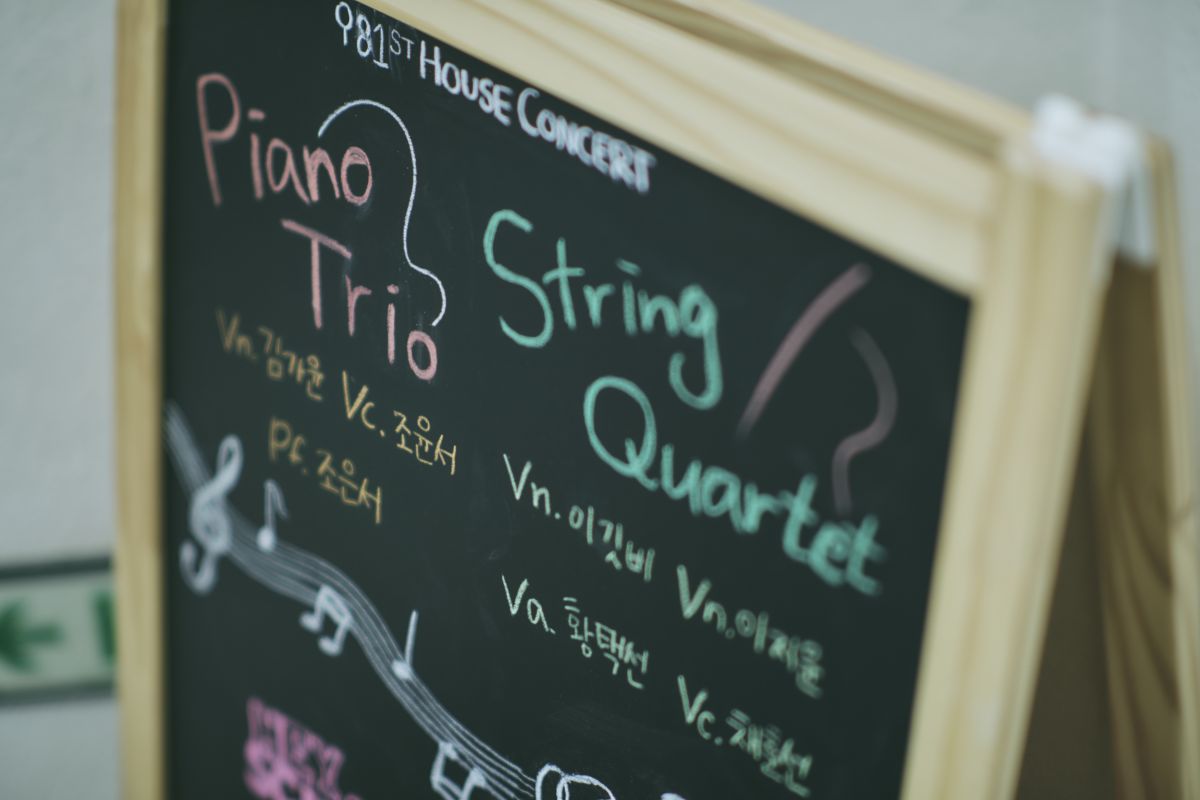 981ST HOUSE CONCERT
Piano
Trio
Vn. 김가윤 Vc. 조윤서
Pf. 조은서
String
Quartet
Vn. 이깃비 Vn. 이지윤
Va. 황택선 Vc. 채훈선